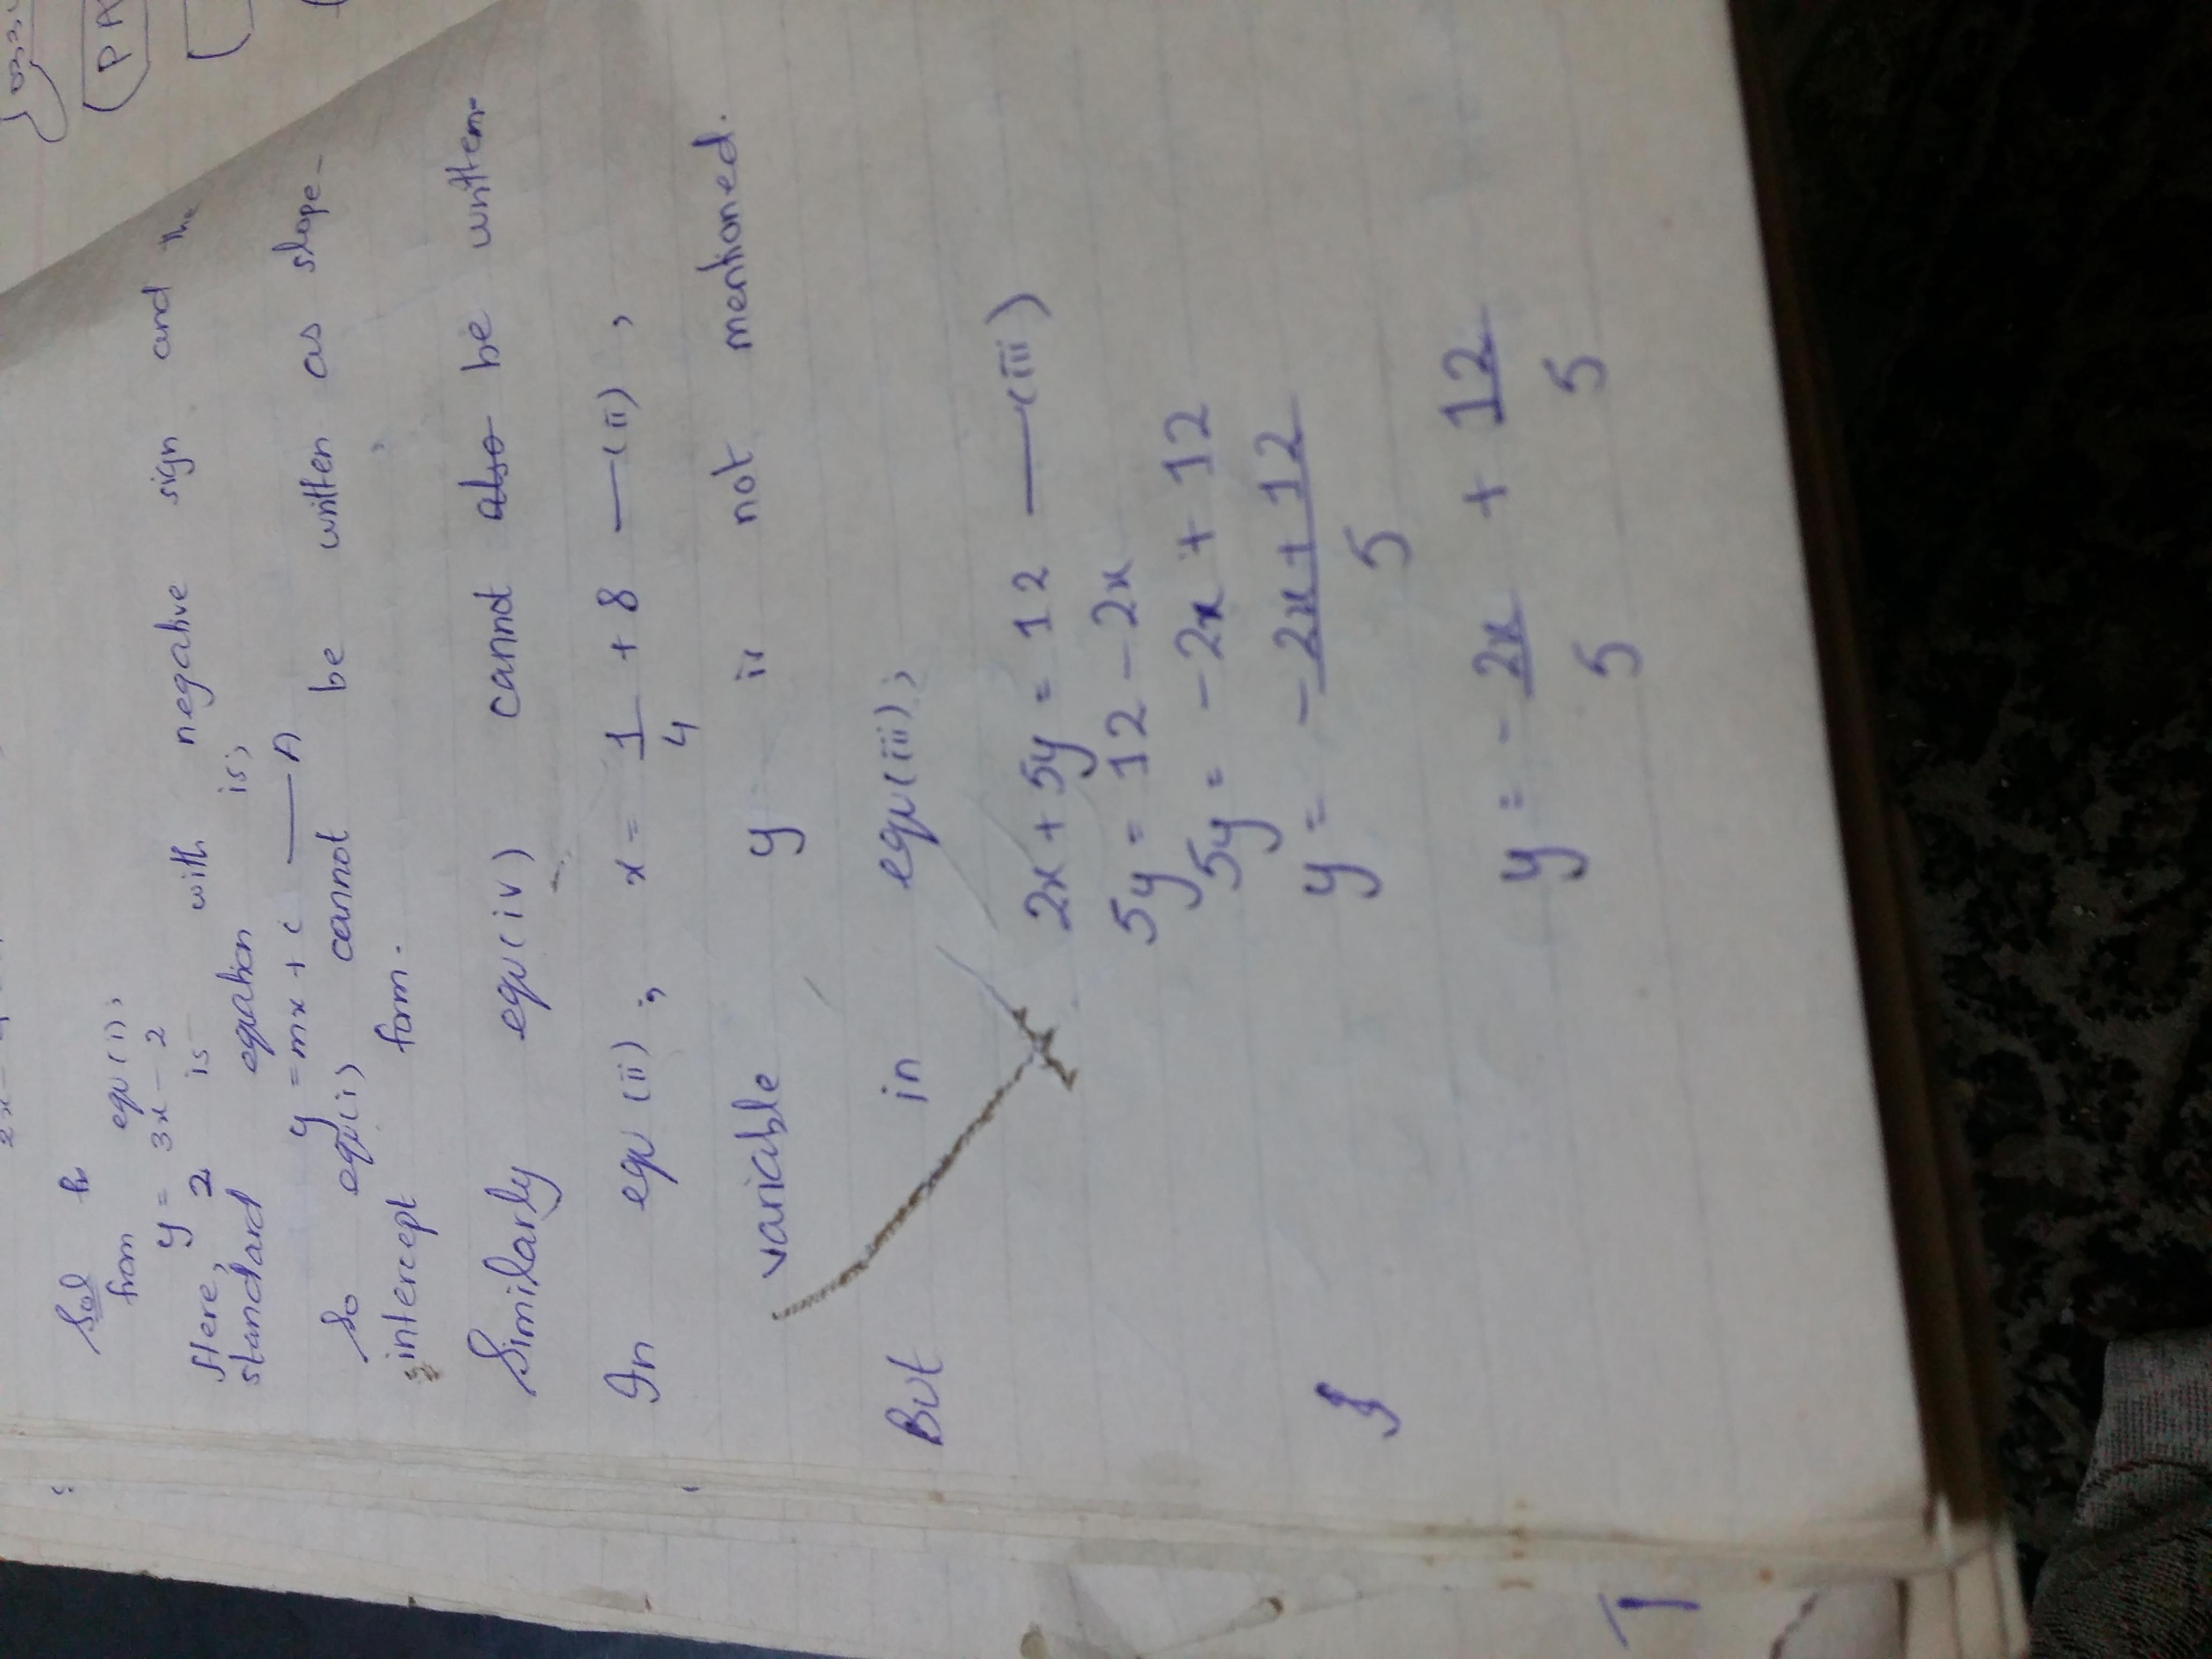 Sol
from equ(i),
y = 3x - 2
Here, 2 is with negative sign and the
standard equation is,
y = mx + c —— A
So equ(i) cannot be written as slope-
intercept form.
Similarly equ(iv) cannot also be written.
In equ(ii), x = 1/4 + 8 —(ii),
variable y is not mentioned.
But in equ(iii),
2x + 5y = 12 ——(iii)
5y = 12 - 2x
5y = -2x + 12
y = -2x + 12 / 5
y = -2x/5 + 12/5